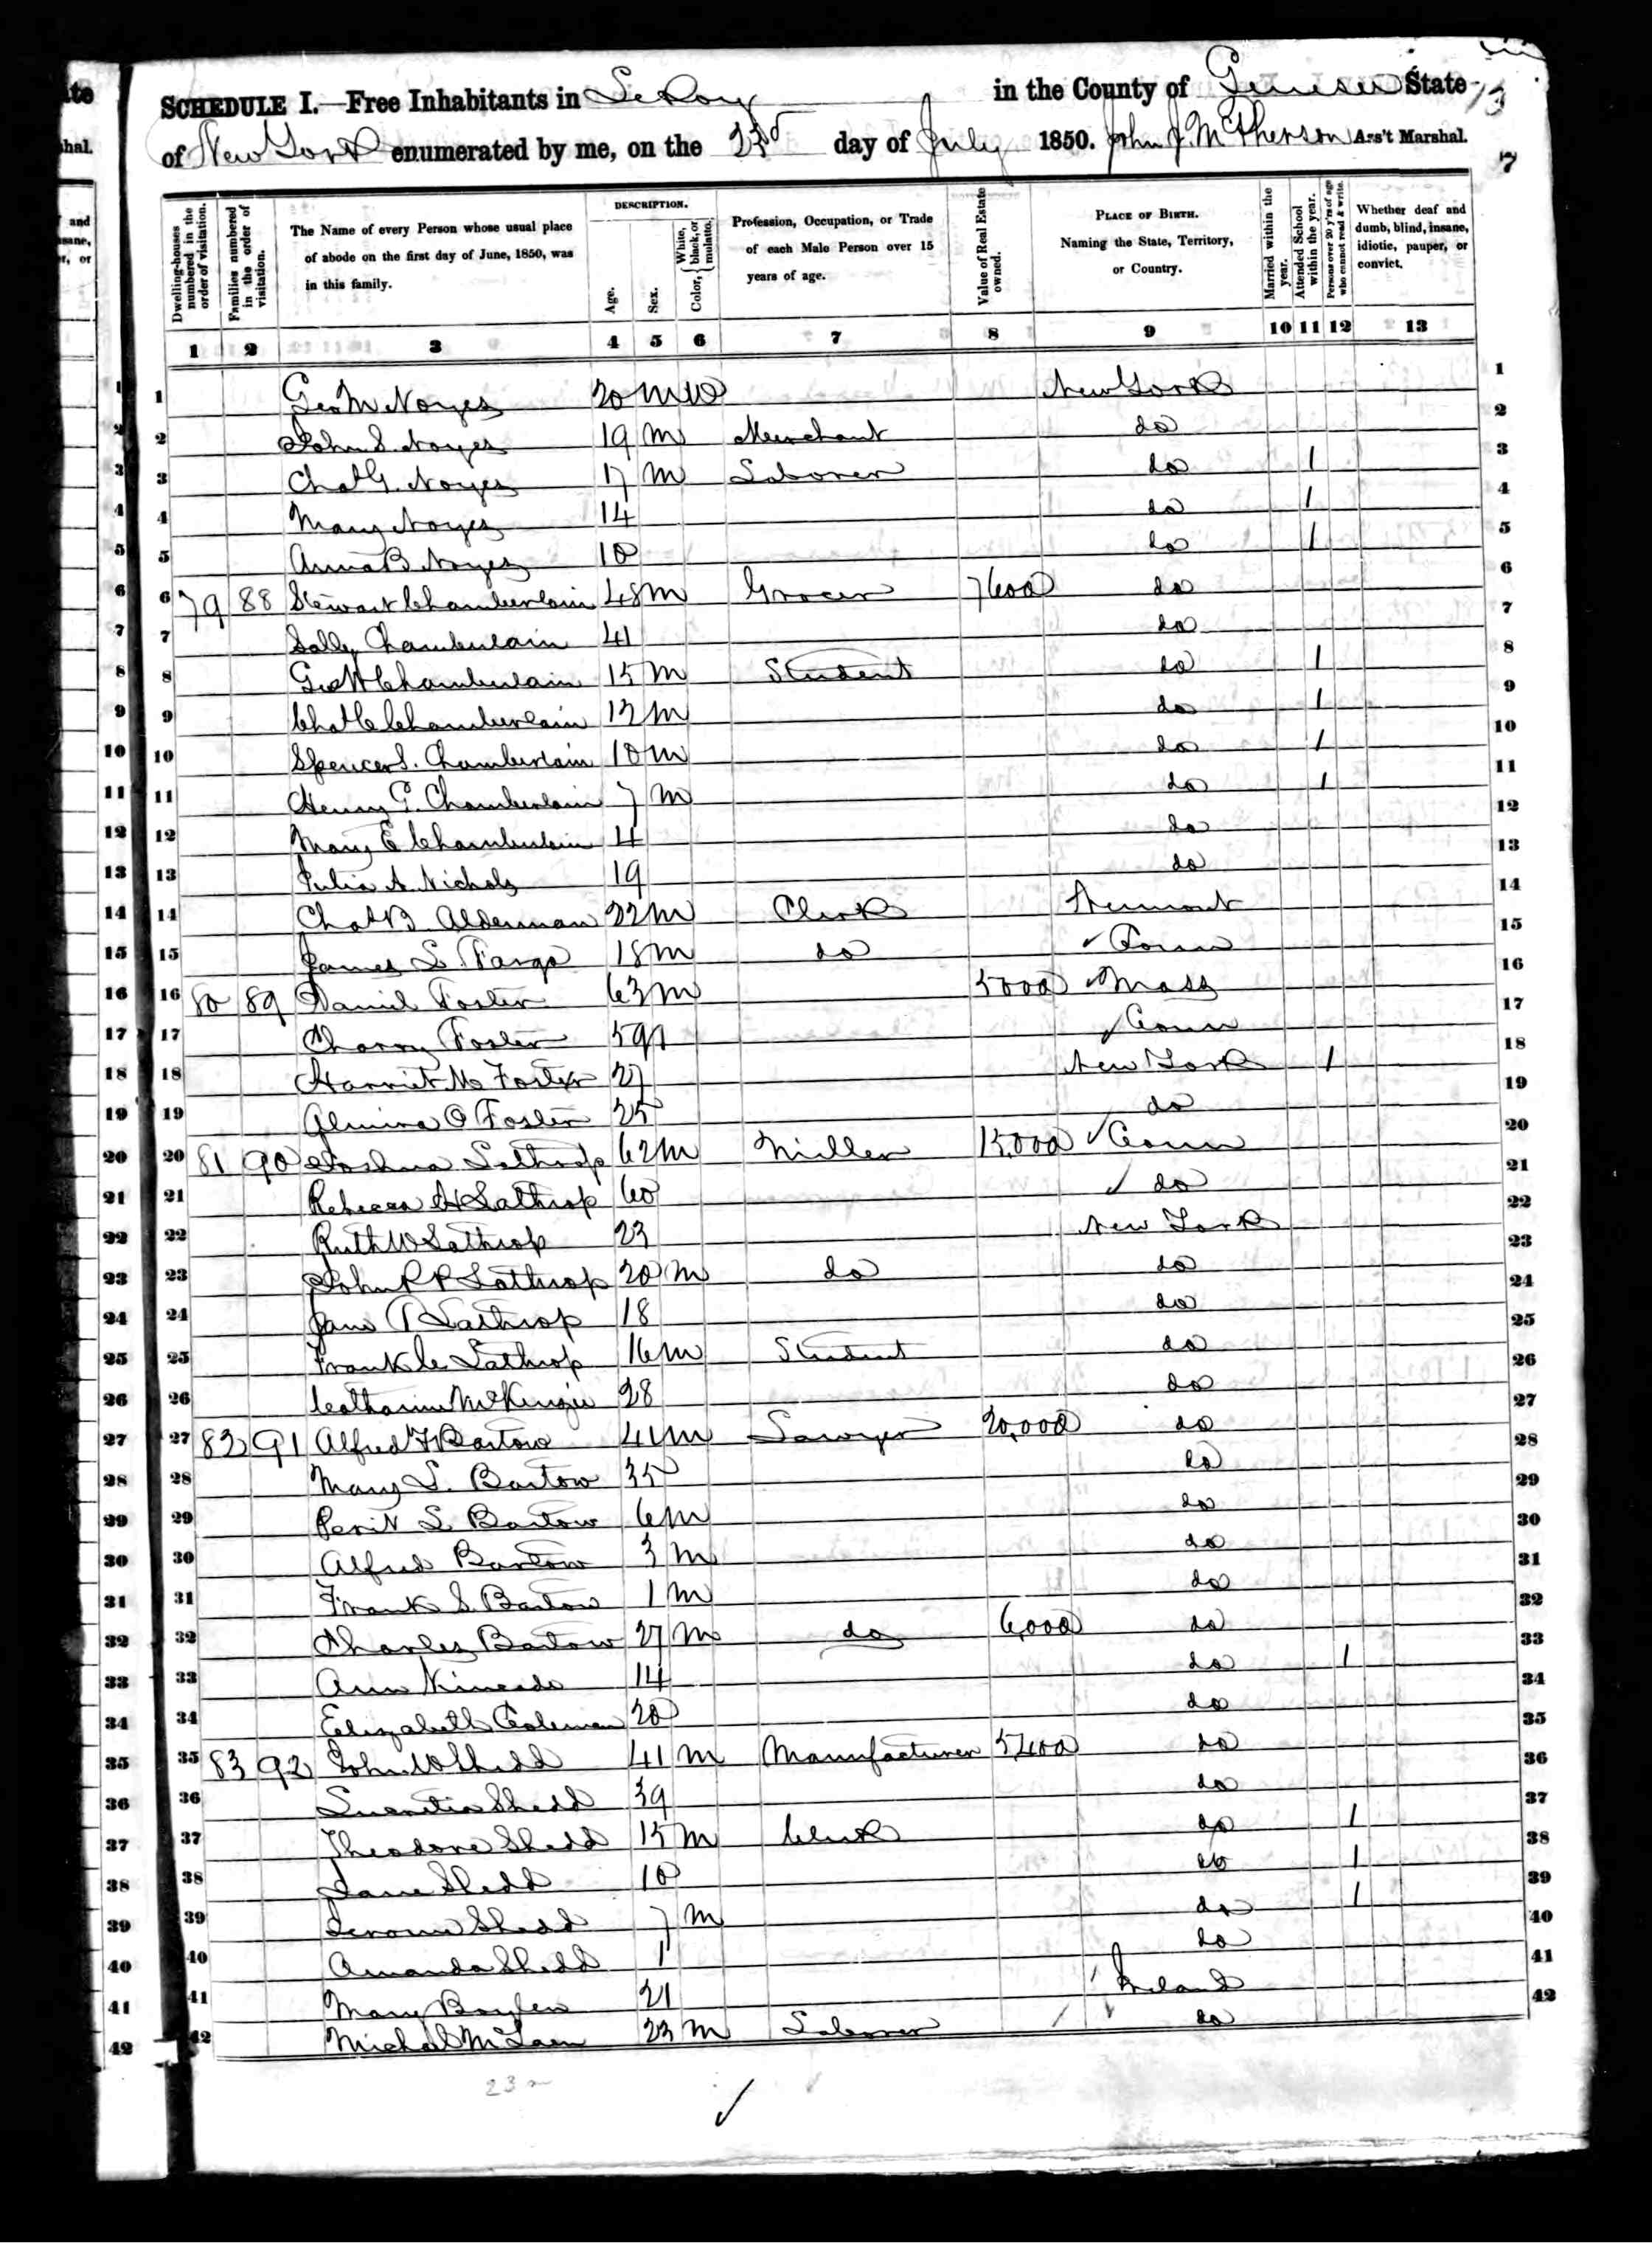 SCHEDULE I.—Free Inhabitants in Le Roy in the County of Genesee State
of New York enumerated by me, on the 23d day of July 1850. John J. McPherson Ass't Marshal.
13
7
Dwelling-houses numbered in the order of visitation.
Families numbered in the order of visitation.
The Name of every Person whose usual place of abode on the first day of June, 1850, was in this family.
DESCRIPTION.
Age.
Sex.
Color, { White, black, or mulatto.
Profession, Occupation, or Trade of each Male Person over 15 years of age.
Value of Real Estate owned.
PLACE OF BIRTH.
Naming the State, Territory, or Country.
Married within the year.
Attended School within the year.
Persons over 20 y'rs of age who cannot read & write.
Whether deaf and dumb, blind, insane, idiotic, pauper, or convict.
1 2 3 4 5 6 7 8 9 10 11 12 13
1 Geo M Noyes 20 M W New York 1
2 John S. Noyes 19 M Merchant do 2
3 Chas G. Noyes 17 M Laborer do 1 3
4 Mary Noyes 14 do 1 4
5 Anna B Noyes 10 do 1 5
6 79 88 Stewart Chamberlain 48 M Grocer 7600 do 6
7 Sally Chamberlain 41 do 7
8 Geo W Chamberlain 15 M Student do 1 8
9 Chas C Chamberlain 12 M do 1 9
10 Spencer S. Chamberlain 10 M do 1 10
11 Henry G. Chamberlain 7 M do 1 11
12 Mary E Chamberlain 4 do 12
13 Julia A Nichols 19 do 13
14 Chas B Alderman 22 M Clerk Vermont 14
15 James L Fargo 18 M do Conn 15
16 80 89 Daniel Foster 63 M 5000 Mass 16
17 Foster 59 Conn 17
18 Harriet M Foster 27 New York 1 18
19 Almira O Foster 25 do 19
20 81 90 Joshua Lathrop 62 M Miller 15,000 Conn 20
21 Rebecca H Lathrop 60 do 21
22 Ruth W Lathrop 23 New York 22
23 John R P Lathrop 20 M do do 23
24 Jane Lathrop 18 do 24
25 Frank C Lathrop 16 M Student do 25
26 Catharine McKenzie 28 do 26
27 82 91 Alfred F Bartow 41 M Lawyer 20,000 do 27
28 Mary L. Bartow 35 do 28
29 L Bartow 6 M do 29
30 Alfred Bartow 3 M do 30
31 Frank S. Bartow 1 M do 31
32 Charles Bartow 27 M do 6,000 do 32
33 Ann Kincade 14 do 1 33
34 Elizabeth Coleman 20 do 34
35 83 92 John W Shedd 41 M Manufacturer 5400 do 35
36 Lucretia Shedd 39 do 36
37 Theodore Shedd 15 M Clerk do 1 37
38 Jane Shedd 10 do 1 38
39 Jerome Shedd 7 M do 1 39
40 Amanda Shedd 1 do 40
41 Mary 21 Ireland 41
42 Michael 23 M Laborer do 42